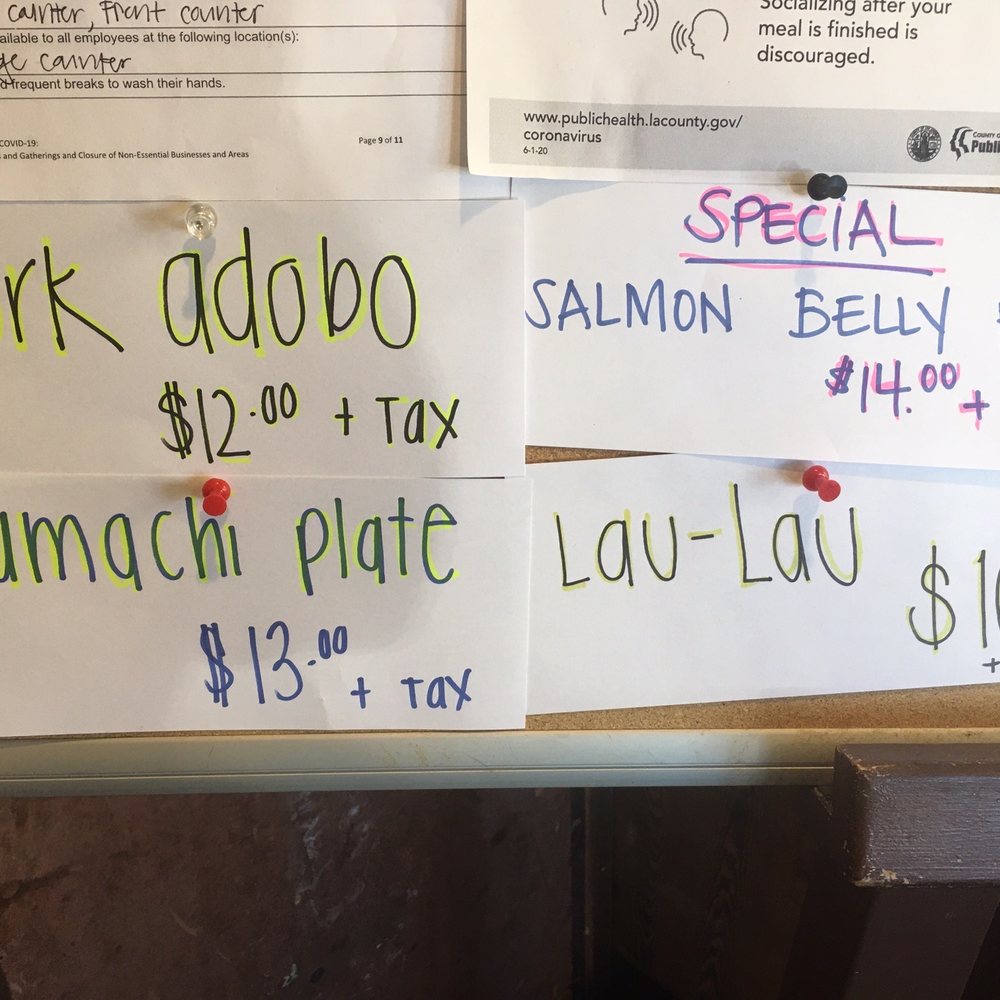 counter, Front counter
ailable to all employees at the following location(s):
ge counter
d frequent breaks to wash their hands.
COVID-19:
Page 9 of 11
s and Gatherings and Closure of Non-Essential Businesses and Areas
Socializing after your
meal is finished is
discouraged.
www.publichealth.lacounty.gov/
coronavirus
6-1-20
COUNTY O
Publi
rk adobo
$12.00 + Tax
SPECIAL
SALMON BELLY
$14.00 +
amachi plate
$13.00 + Tax
Lau-Lau
$1
+